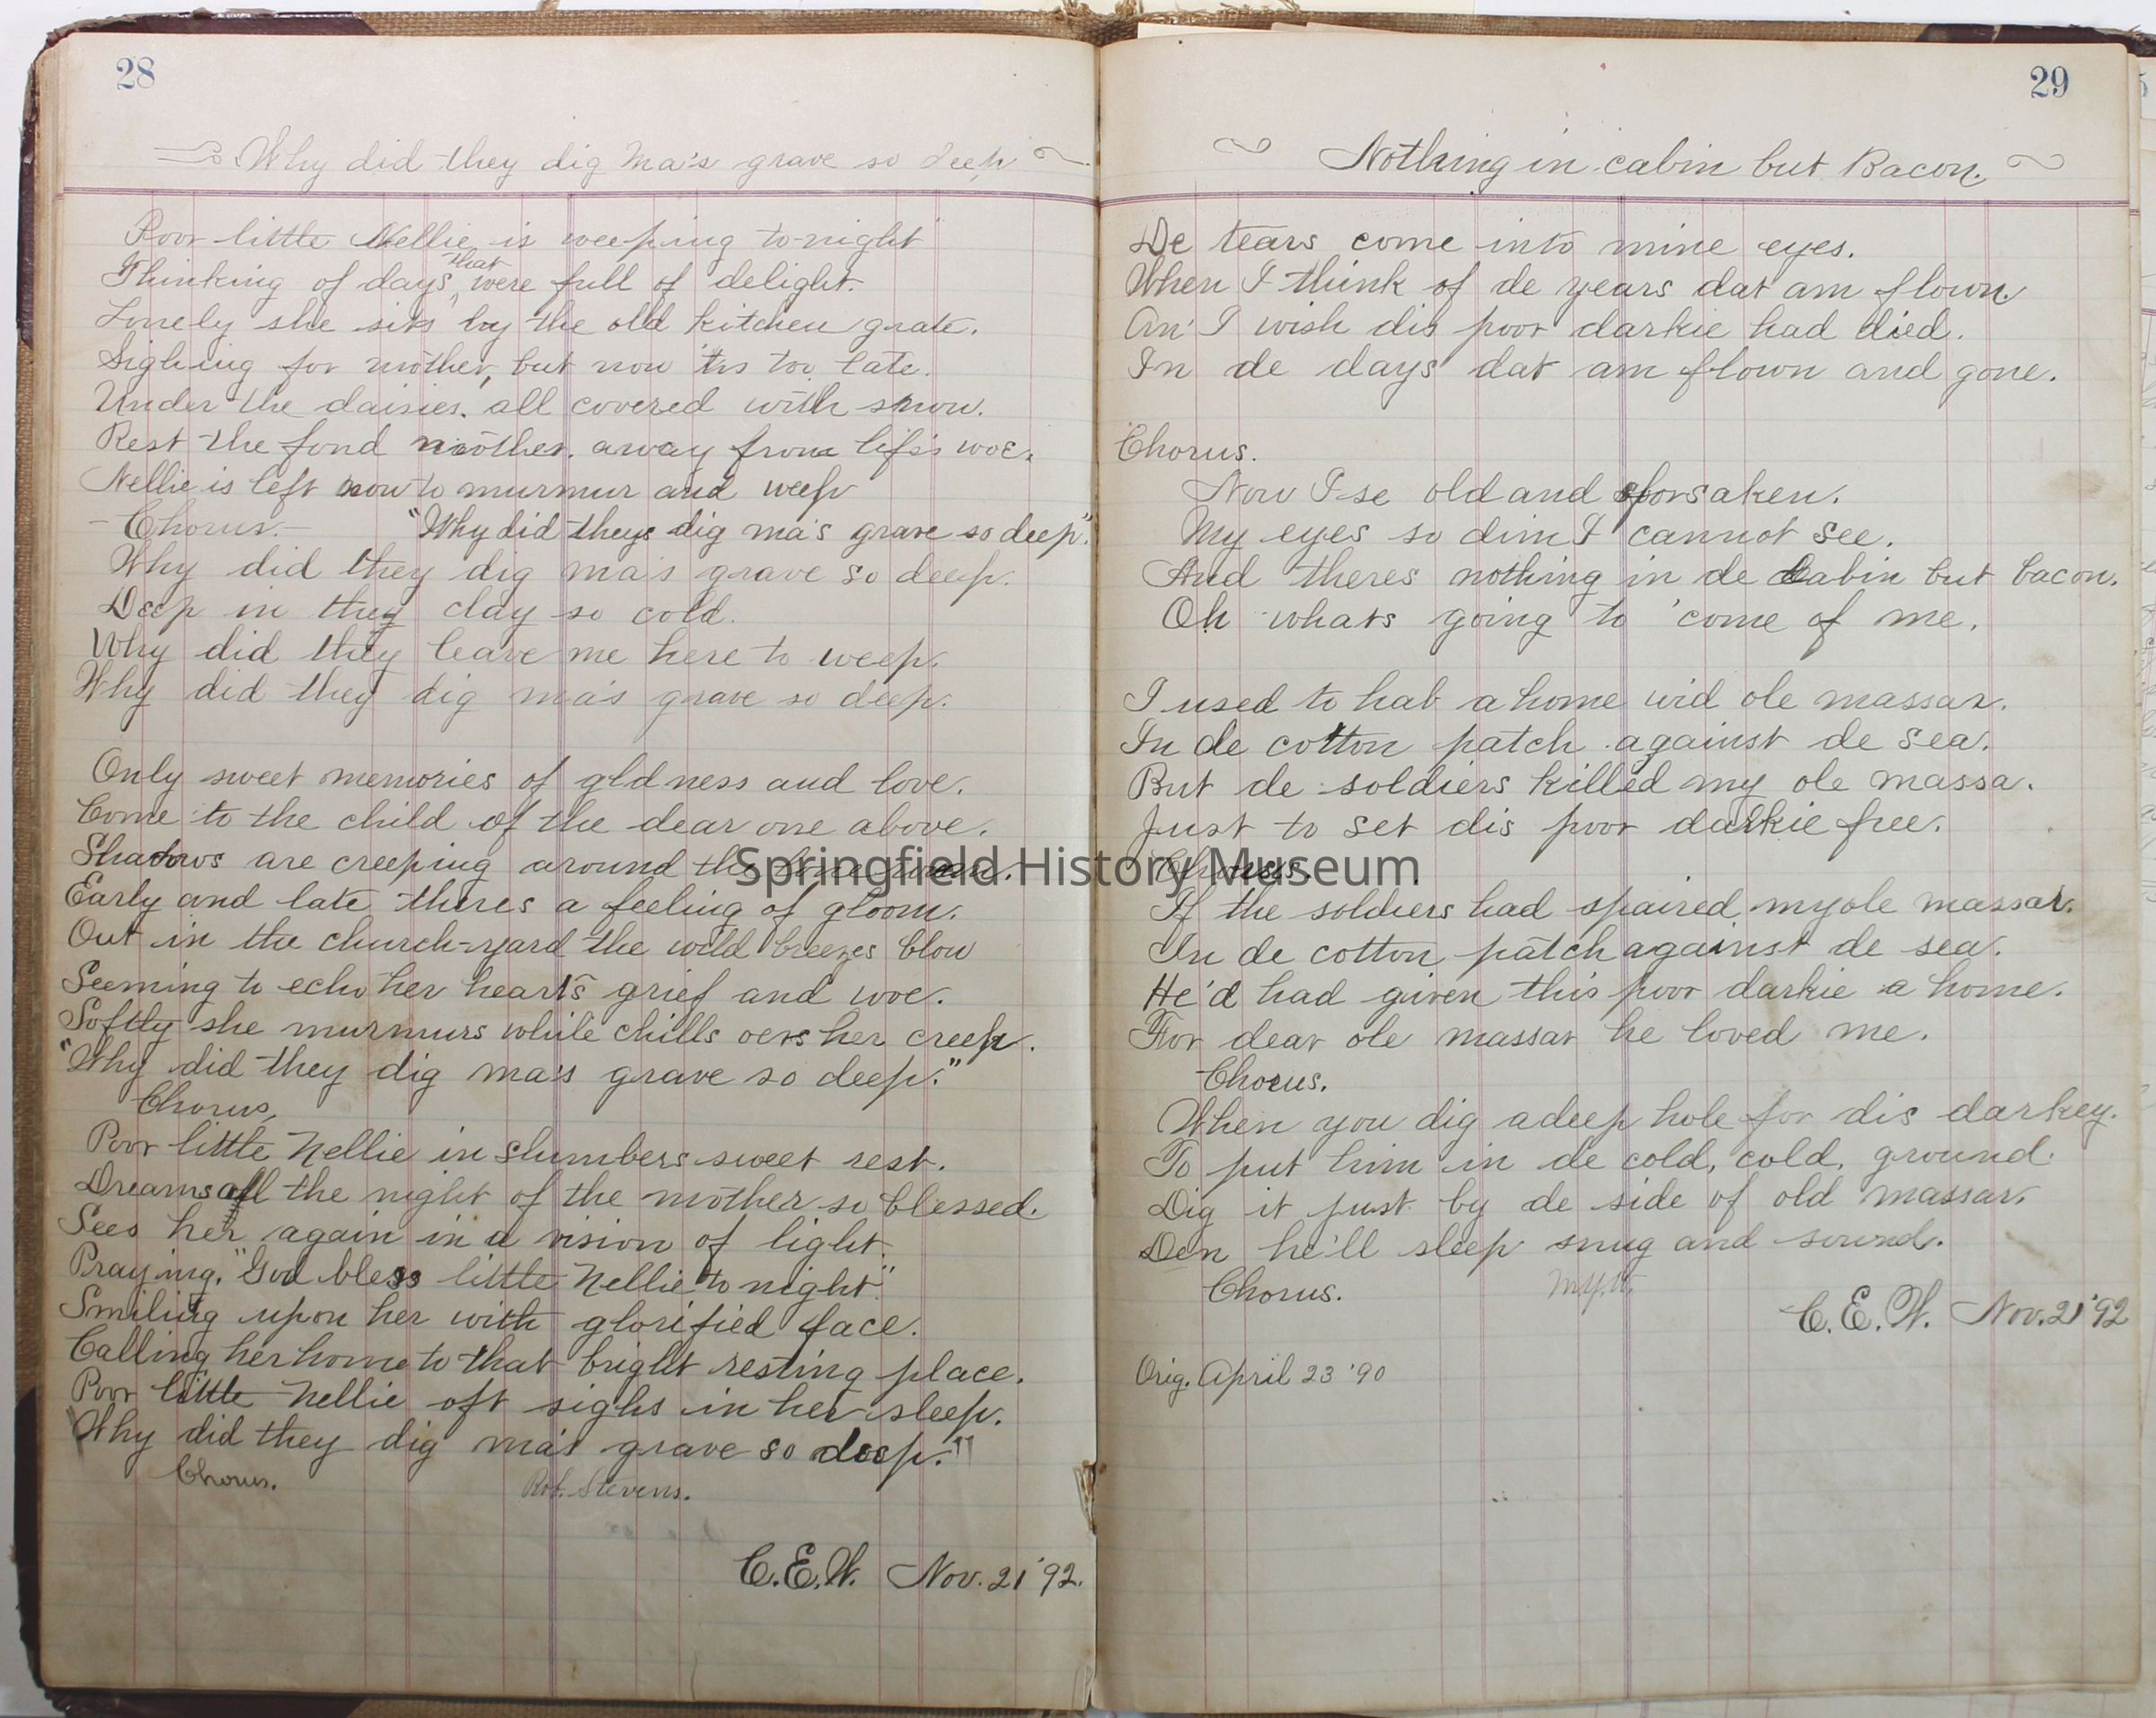 28
Why did they dig Ma's grave so deep
Poor little Nellie is weeping to-night
Thinking of days that were full of delight.
Lonely she sits by the old kitchen grate.
Sighing for mother, but now 'tis too late.
Under the daisies. all covered with snow.
Rest the fond mother. away from life's woe.
Nellie is left now to murmur and weep
"Why did they dig ma's grave so deep".
-Chorus.-
Why did they dig ma's grave so deep.
Deep in they clay so cold.
Why did they leave me here to weep.
Why did they dig ma's grave so deep.
Only sweet memories of gldness and love.
Come to the child of the dear one above.
Shadows are creeping around the
Early and late theres a feeling of gloom.
Out in the church-yard the wild breezes blow
Seeming to echo her heart's grief and woe.
Softly she murmurs while chills oers her creep.
"Why did they dig ma's grave so deep."
Chorus,
Poor little Nellie in slumbers sweet rest.
Dreams all the night of the mother so blessed.
Sees her again in a vision of light.
Praying, "God bless little Nellie to night".
Smiling upon her with glorified face.
Calling her home to that bright resting place.
Poor little Nellie oft sighs in her sleep.
"Why did they dig ma's grave so deep."
Chorus.
Rob. Stevens.
C.E.W. Nov. 21 '92.
29
Nothing in cabin but Bacon.
De tears come into mine eyes.
When I think of de years dat am flown.
An' I wish dis poor darkie had died.
In de days dat am flown and gone.
Chorus.
Now I-se old and forsaken.
My eyes so dim I cannot see.
And theres nothing in de Cabin but bacon.
Oh whats going to 'come of me.
I used to hab a home wid ole massar.
In de cotton patch against de sea.
But de soldiers killed my ole massa.
Just to set dis poor darkie free.
Chorus.
If the soldiers had spaired my ole massar.
In de cotton patch against de sea.
He'd had given this poor darkie a home.
For dear ole massar he loved me.
Chorus.
When you dig a deep hole for dis darkey.
To put him in de cold, cold, ground.
Dig it just by de side of old massar.
Den he'll sleep snug and sound.
Chorus.
C.E.W. Nov. 21 '92
Orig. April 23 '90
Springfield History Museum